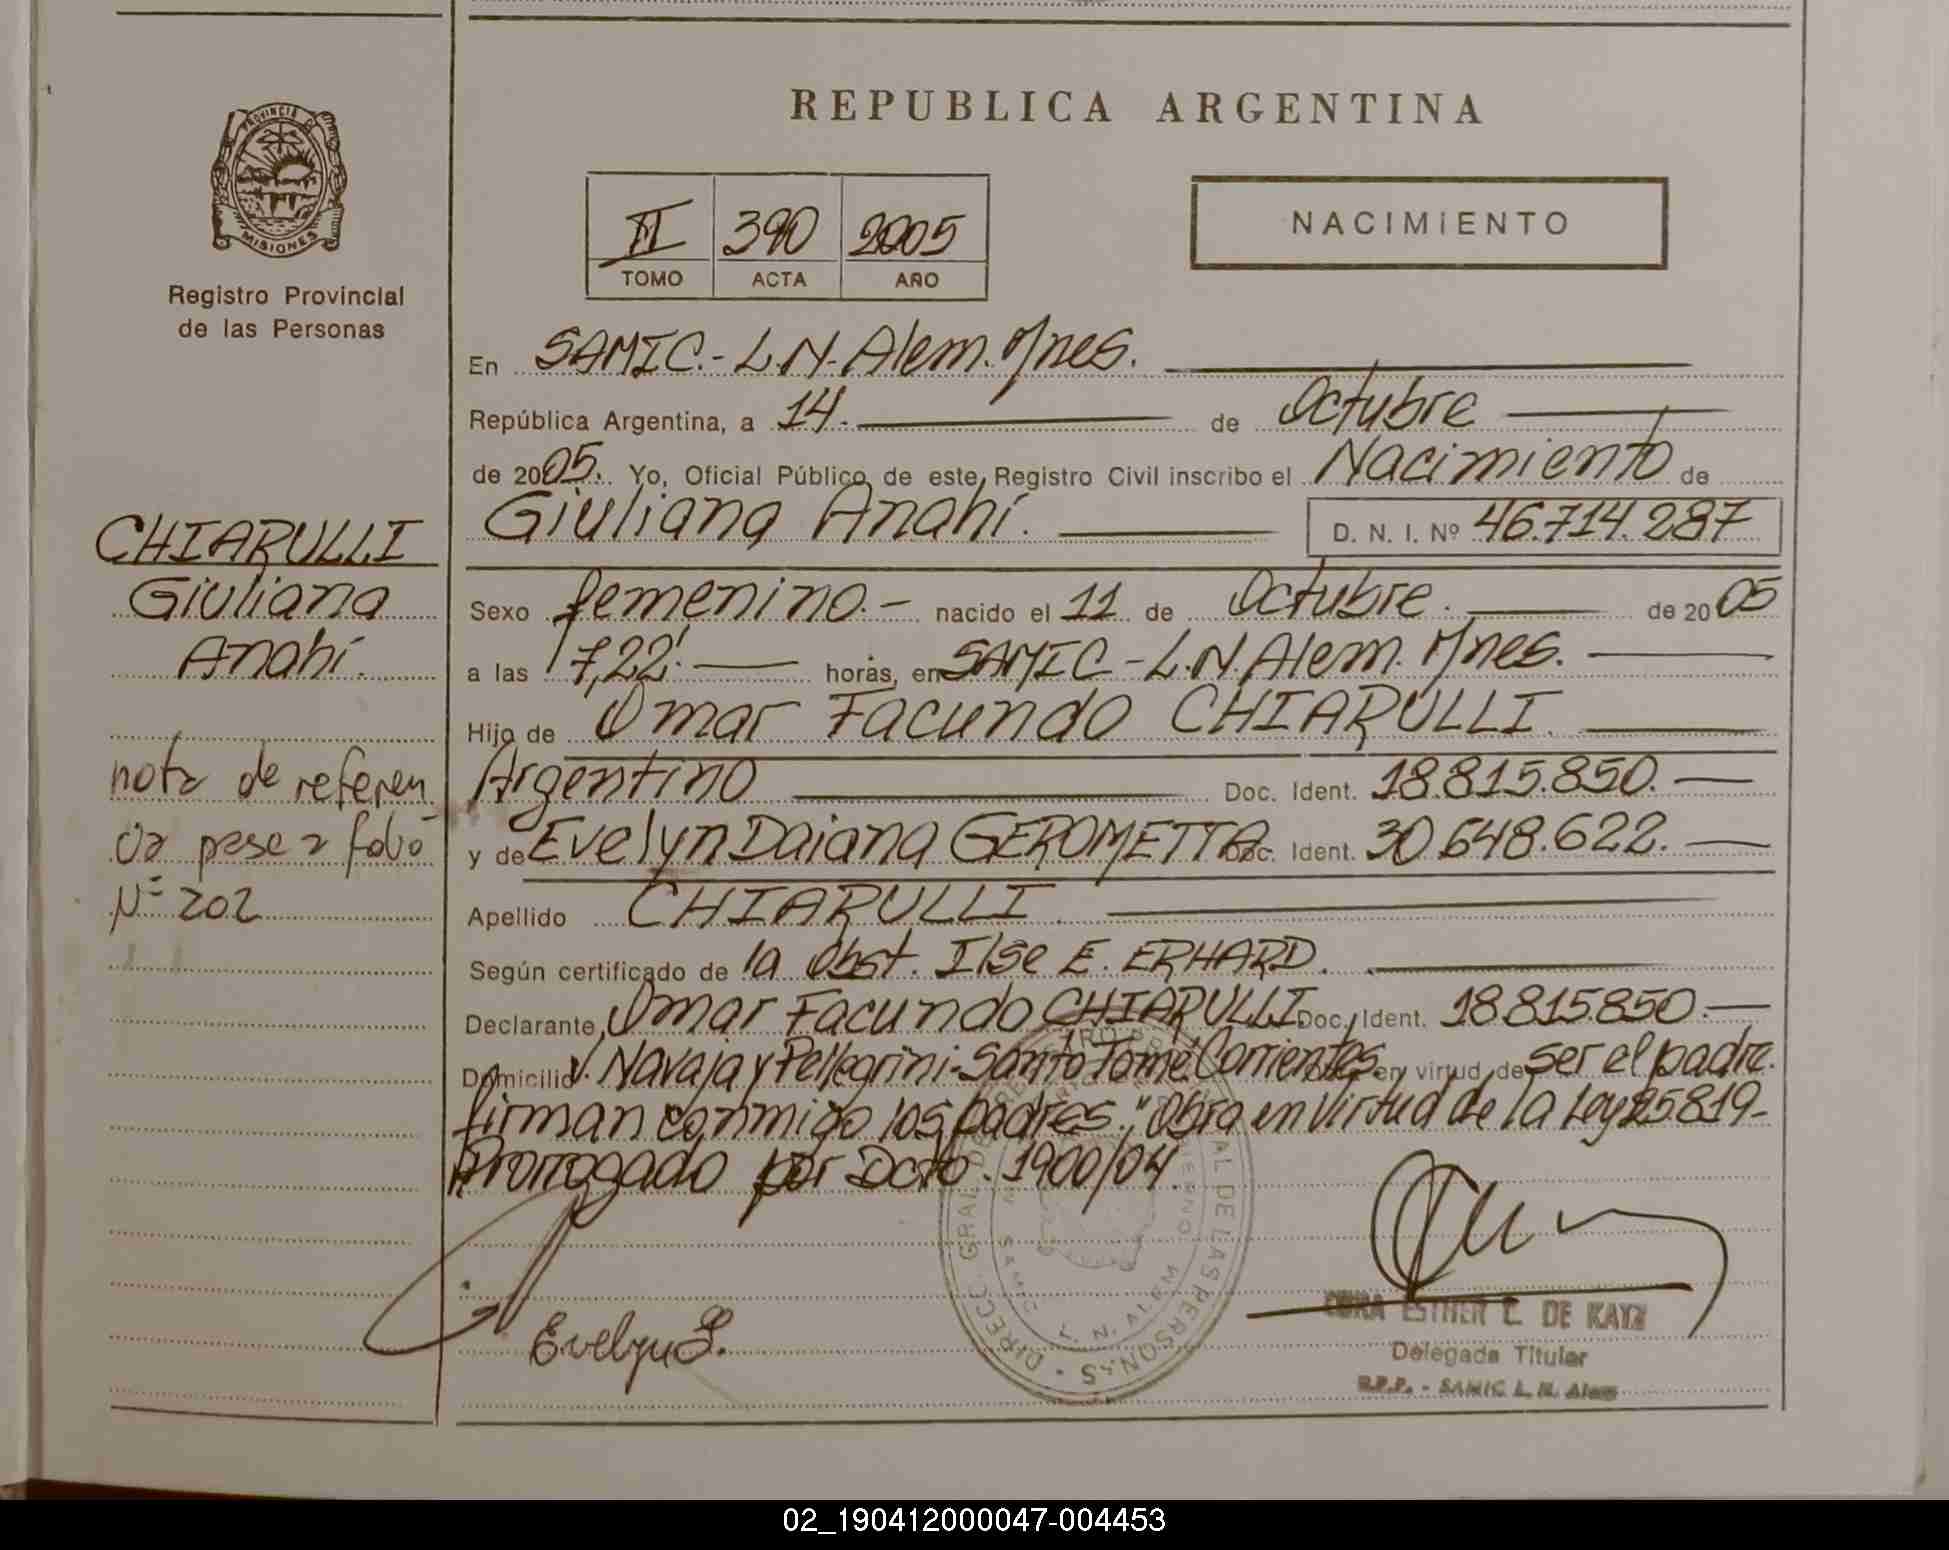 PROVINCIA DE
MISIONES
Registro Provincial
de las Personas
CHIARULLI
Giuliana
Anahí.
nota de referen
cia pase a folio
Nº 202
REPUBLICA ARGENTINA
II 390 2005
TOMO ACTA AÑO
NACIMIENTO
En SAMIC.- L.N. Alem. Mnes.
República Argentina, a 14. de Octubre
de 2005. Yo, Oficial Público de este Registro Civil inscribo el Nacimiento de
Giuliana Anahí. D. N. I. Nº 46.714.287
Sexo femenino.- nacido el 11 de Octubre. de 2005
a las 17,22'. horas, en SAMIC - L.N. Alem. Mnes.
Hijo de Omar Facundo CHIARULLI.
Argentino Doc. Ident. 18.815.850.
y de Evelyn Daiana GEROMETTA Doc. Ident. 30.648.622.
Apellido CHIARULLI.
Según certificado de la Obst. Ilse E. ERHARD.
Declarante, Omar Facundo CHIARULLI Doc. Ident. 18.815.850.
Domicilio Navaja y Pellegrini - Santo Tomé. Corrientes. en virtud de ser el padre.
firman conmigo los padres. "Obra en virtud de la Ley 25819-
Prorrogado por Dcto. 1900/04.
Evelyn G.
DIREC. GRAL. DEL REGISTRO AL DE LAS PERSONAS
SAMIC L. N. ALEM
ESTHER E. DE
Delegada Titular
R.P.P. - SAMIC L. N. Alem
02_190412000047-004453